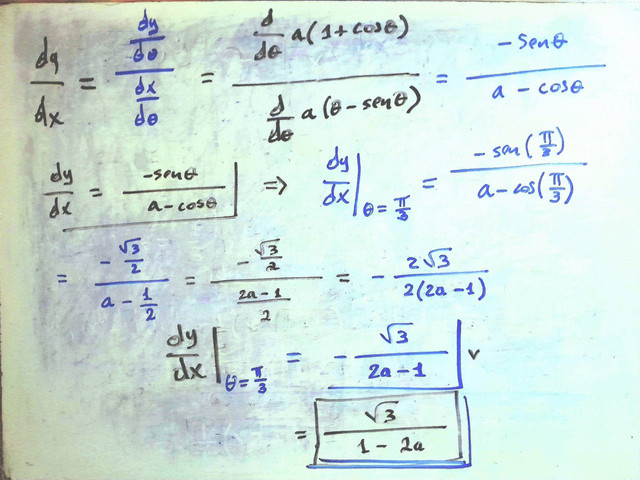 dy/dx = (dy/dθ)/(dx/dθ) = (d/dθ a(1+cosθ))/(d/dθ a(θ-senθ)) = -senθ/(a-cosθ)
dy/dx = -senθ/(a-cosθ) ⇒ dy/dx|θ=π/3 = -sen(π/3)/(a-cos(π/3))
= (-√3/2)/(a-1/2) = (-√3/2)/((2a-1)/2) = - 2√3/(2(2a-1))
dy/dx|θ=π/3 = - √3/(2a-1) v
= √3/(1-2a)